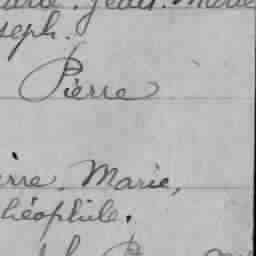 Jean. Marie
seph.
Pierre
erre. Marie,
héophile.